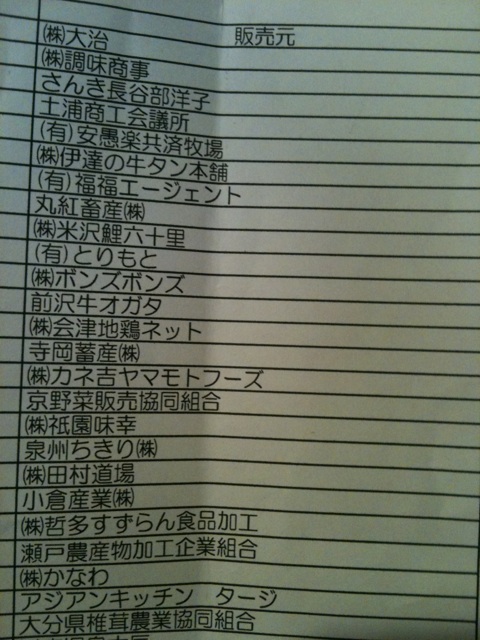 ㈱大治 販売元
㈱調味商事
さんき長谷部洋子
土浦商工会議所
(有)安愚楽共済牧場
㈱伊達の牛タン本舗
(有)福福エージェント
丸紅畜産㈱
㈱米沢鯉六十里
(有)とりもと
㈱ボンズボンズ
前沢牛オガタ
㈱会津地鶏ネット
寺岡蓄産㈱
㈱カネ吉ヤマモトフーズ
京野菜販売協同組合
㈱祇園味幸
泉州ちきり㈱
㈱田村道場
小倉産業㈱
㈱哲多すずらん食品加工
瀬戸農産物加工企業組合
㈱かなわ
アジアンキッチン タージ
大分県椎茸農業協同組合